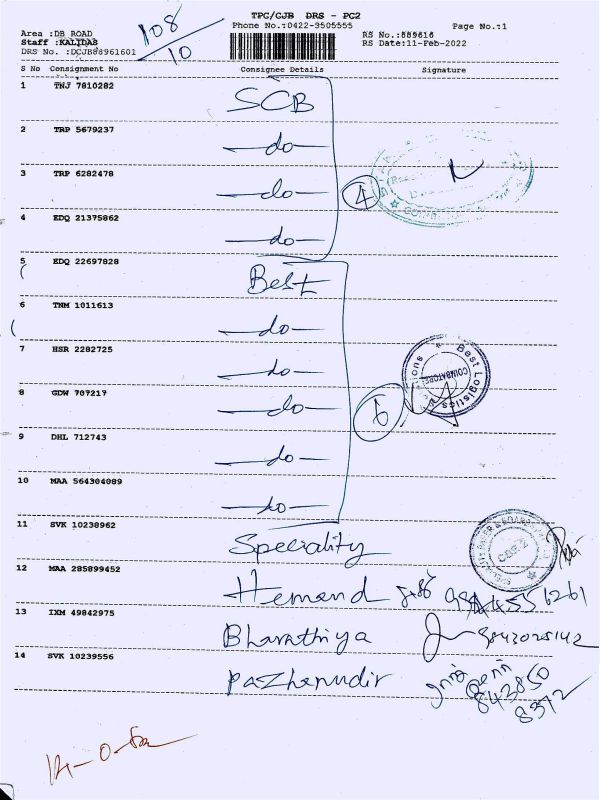 TPC/CJB DRS - PC2
Phone No.:0422-3505555
Page No.:1
Area :DB ROAD
Staff :KALIDAS
DRS No. :DCJB88961601
RS No.:889616
RS Date:11-Feb-2022
108/10
S No Consignment No Consignee Details Signature
1 TNJ 7810282 SCB
2 TRP 5679237 —do—
3 TRP 6282478 —do—
4
4 EDQ 21375862 —do—
5 EDQ 22697828 Best
6 TNM 1011613 —do—
7 HSR 2282725 —do—
Best Logistics
COIMBATORE
8 GDW 707217 —do—
6
9 DHL 712743 —do—
10 MAA 564304089 —do—
11 SVK 10238962 Speciality
CBE-2
12 MAA 285899452 Hemand
13 IXM 49842975 Bharathiya
14 SVK 10239556 Pazhamudir
843850
8372